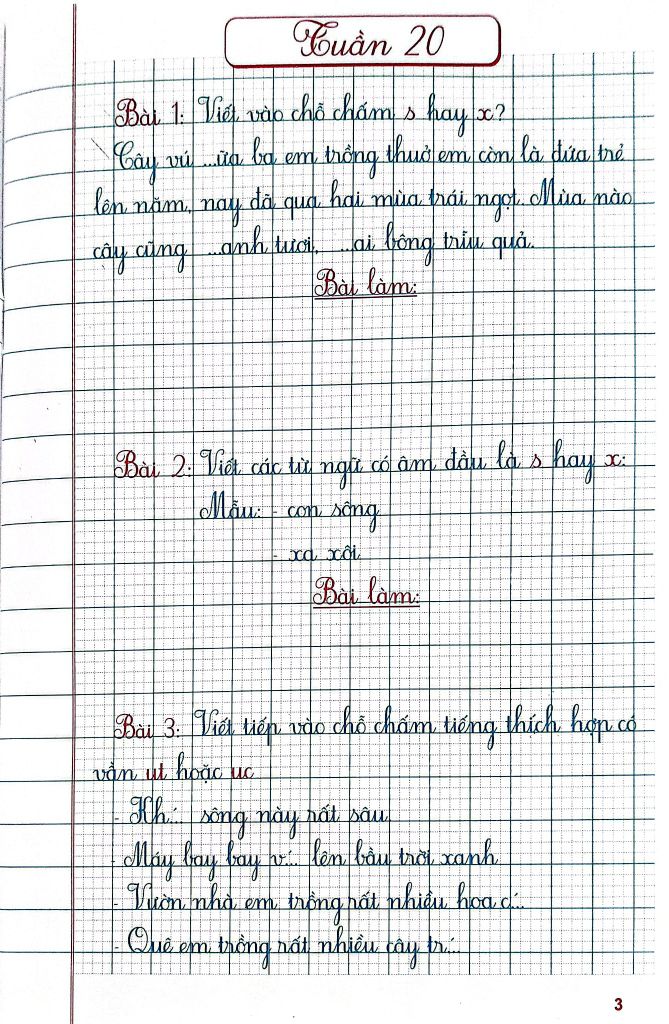 Tuần 20
Bài 1: Viết vào chỗ chấm s hay x?
Cây vú ...ữa ba em trồng thuở em còn là đứa trẻ
lên năm, nay đã qua hai mùa trái ngọt. Mùa nào
cây cũng ...anh tươi, ...ai bông trĩu quả.
Bài làm:
Bài 2: Viết các từ ngữ có âm đầu là s hay x:
Mẫu: - con sông
- xa xôi
Bài làm:
Bài 3: Viết tiếp vào chỗ chấm tiếng thích hợp có
vần ut hoặc uc
- Kh... sông này rất sâu
- Máy bay bay v... lên bầu trời xanh
- Vườn nhà em trồng rất nhiều hoa c...
- Quê em trồng rất nhiều cây tr...
3